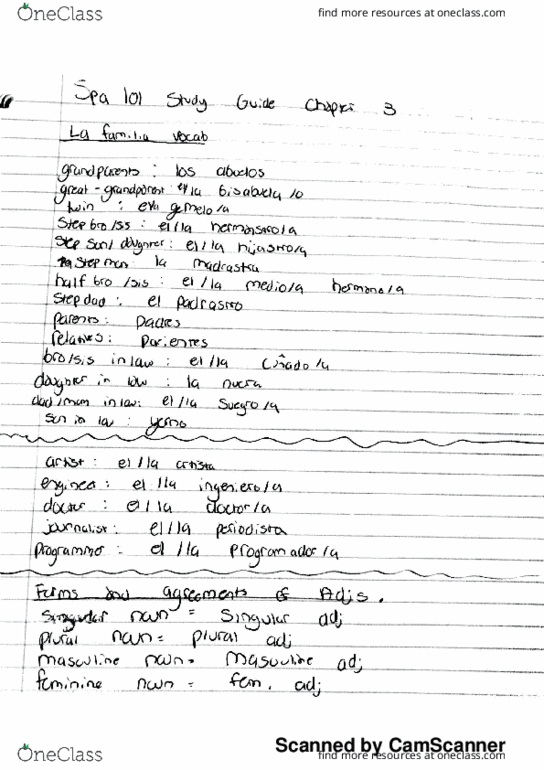 OneClass
find more resources at oneclass.com
Spa 101 Study Guide Chapter 3
La familia vocab
grandparents : los abuelos
great-grandparent el/la bisabuela/o
twin : el/la gemelo/a
Step bro/sis : el/la hermanastro/a
Step son/daughter : el/la hijastro/a
Step mom : la madrastra
half bro/sis : el/la medio/a hermano/a
Stepdad : el padrastro
parents : padres
relatives : parientes
bro/sis in law : el/la cuñado/a
daughter in law : la nuera
dad/mom in law: el/la suegro/a
Son in law : yerno
artist : el/la artista
engineer : el/la ingeniero/a
doctor : el/la doctor/a
journalist : el/la periodista
Programmer : el/la programador/a
Forms and agreements of Adjs.
Singular noun = Singular adj
plural noun = plural adj
masculine noun = masculine adj
feminine noun = fem. adj
Scanned by CamScanner
OneClass
find more resources at oneclass.com